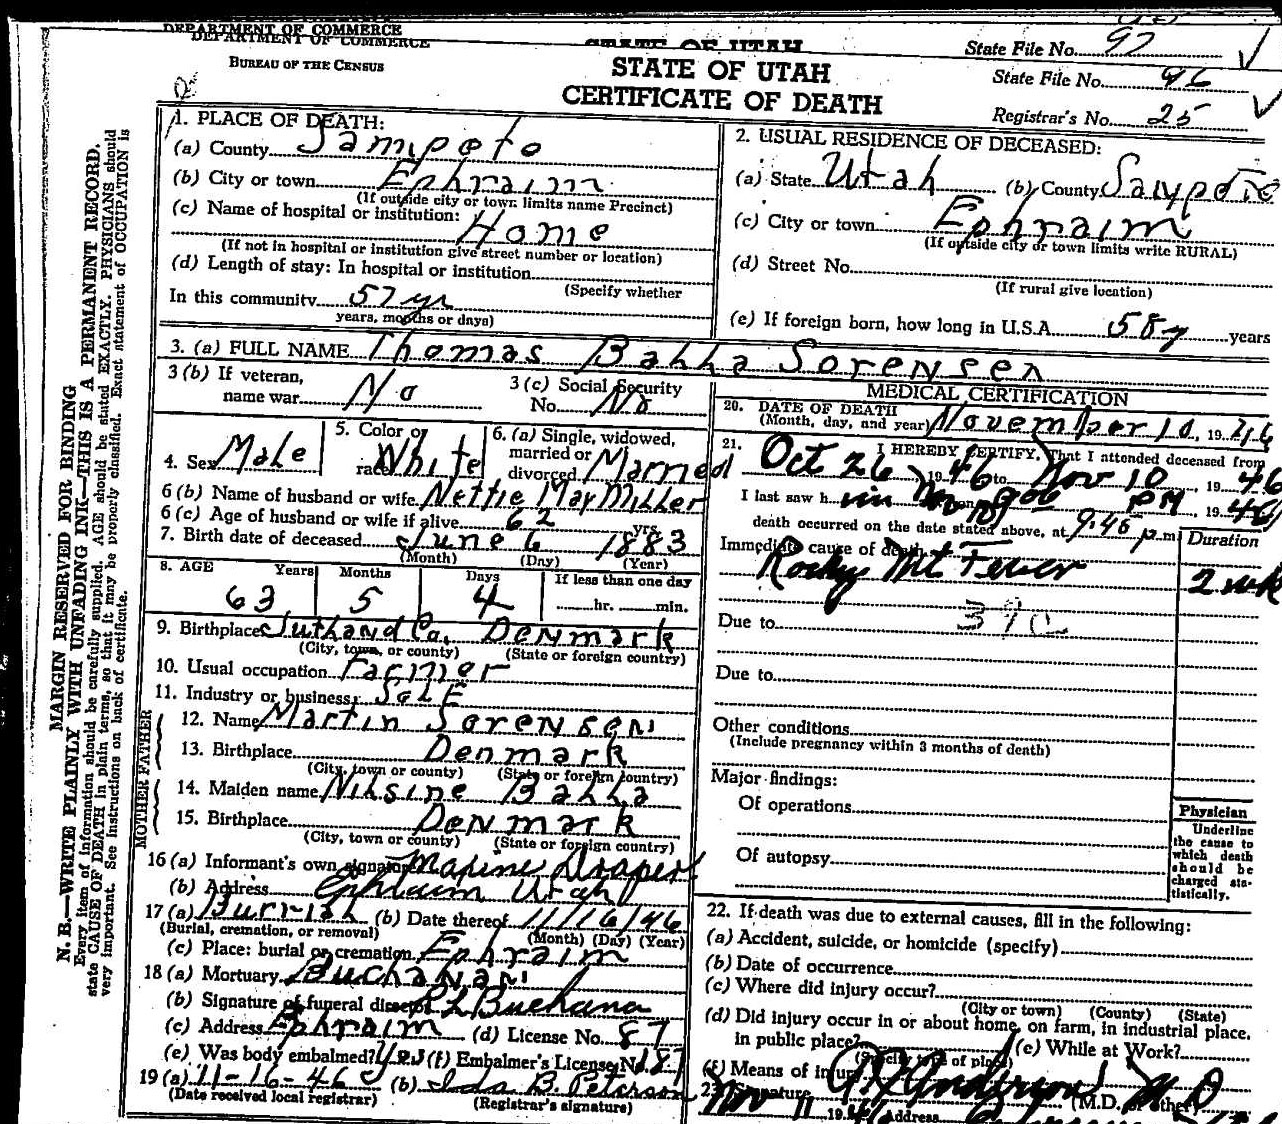 DEPARTMENT OF COMMERCE
DEPARTMENT OF COMMERCE
BUREAU OF THE CENSUS
STATE OF UTAH
STATE OF UTAH
CERTIFICATE OF DEATH
State File No. 97
State File No. 96
Registrar's No. 25
MARGIN RESERVED FOR BINDING
N. B.—WRITE PLAINLY WITH UNFADING INK—THIS IS A PERMANENT RECORD.
Every item of information should be carefully supplied. AGE should be stated EXACTLY. PHYSICIANS should
state CAUSE OF DEATH in plain terms, so that it may be properly classified. Exact statement of OCCUPATION is
very important. See instructions on back of certificate.
1. PLACE OF DEATH:
(a) County Sanpete
(b) City or town Ephraim
(If outside city or town limits name Precinct)
(c) Name of hospital or institution:
Home
(If not in hospital or institution give street number or location)
(d) Length of stay: In hospital or institution
(Specify whether
In this community 57 yr
years, months or days)
2. USUAL RESIDENCE OF DECEASED:
(a) State Utah (b) County Sanpete
(c) City or town Ephraim
(If outside city or town limits write RURAL)
(d) Street No.
(If rural give location)
(e) If foreign born, how long in U.S.A. 58 y years
3. (a) FULL NAME Thomas Balla Sorensen
3 (b) If veteran, name war No
3 (c) Social Security No. No
4. Sex Male
5. Color or race White
6. (a) Single, widowed, married or divorced Married
6 (b) Name of husband or wife Nettie May Miller
6 (c) Age of husband or wife if alive 62 yrs.
7. Birth date of deceased June 6 1883
(Month) (Day) (Year)
8. AGE Years Months Days If less than one day
63 5 4 hr. min.
9. Birthplace Jutland Co. Denmark
(City, town, or county) (State or foreign country)
10. Usual occupation Farmer
11. Industry or business Self
FATHER
12. Name Martin Sorensen
13. Birthplace Denmark
(City, town or county) (State or foreign country)
MOTHER
14. Maiden name Nilsine Balla
15. Birthplace Denmark
(City, town or county) (State or foreign country)
16 (a) Informant's own signature Maxine Draper
(b) Address Ephraim Utah
17 (a) Burrial (b) Date thereof 11/16/46
(Burial, cremation, or removal) (Month) (Day) (Year)
(c) Place: burial or cremation Ephraim
18 (a) Mortuary Buchanan
(b) Signature of funeral director Buchana
(c) Address Ephraim (d) License No. 87
(e) Was body embalmed? Yes (f) Embalmer's License No. 187
19 (a) 11-16-46 (b) Ida B. Peterson
(Date received local registrar) (Registrar's signature)
MEDICAL CERTIFICATION
20. DATE OF DEATH
(Month, day, and year) November 10, 1946
21. I HEREBY CERTIFY, That I attended deceased from
Oct 26 1946 to Nov 10, 1946
I last saw him Nov 10 PM, 1946
death occurred on the date stated above, at 9:45 p.m.
Duration
Immediate cause of death
Rocky Mt Fever 2 wk
Due to
Due to
Other conditions
(Include pregnancy within 3 months of death)
Major findings:
Of operations
Of autopsy
Physician
Underline
the cause to
which death
should be
charged sta-
tistically.
22. If death was due to external causes, fill in the following:
(a) Accident, suicide, or homicide (specify)
(b) Date of occurrence
(c) Where did injury occur?
(City or town) (County) (State)
(d) Did injury occur in or about home, on farm, in industrial place,
in public place? (e) While at Work?
(Specify type of place)
(f) Means of injury
23. Signature Anderson M D (M.D. or other)
Nov 11 1946 Address